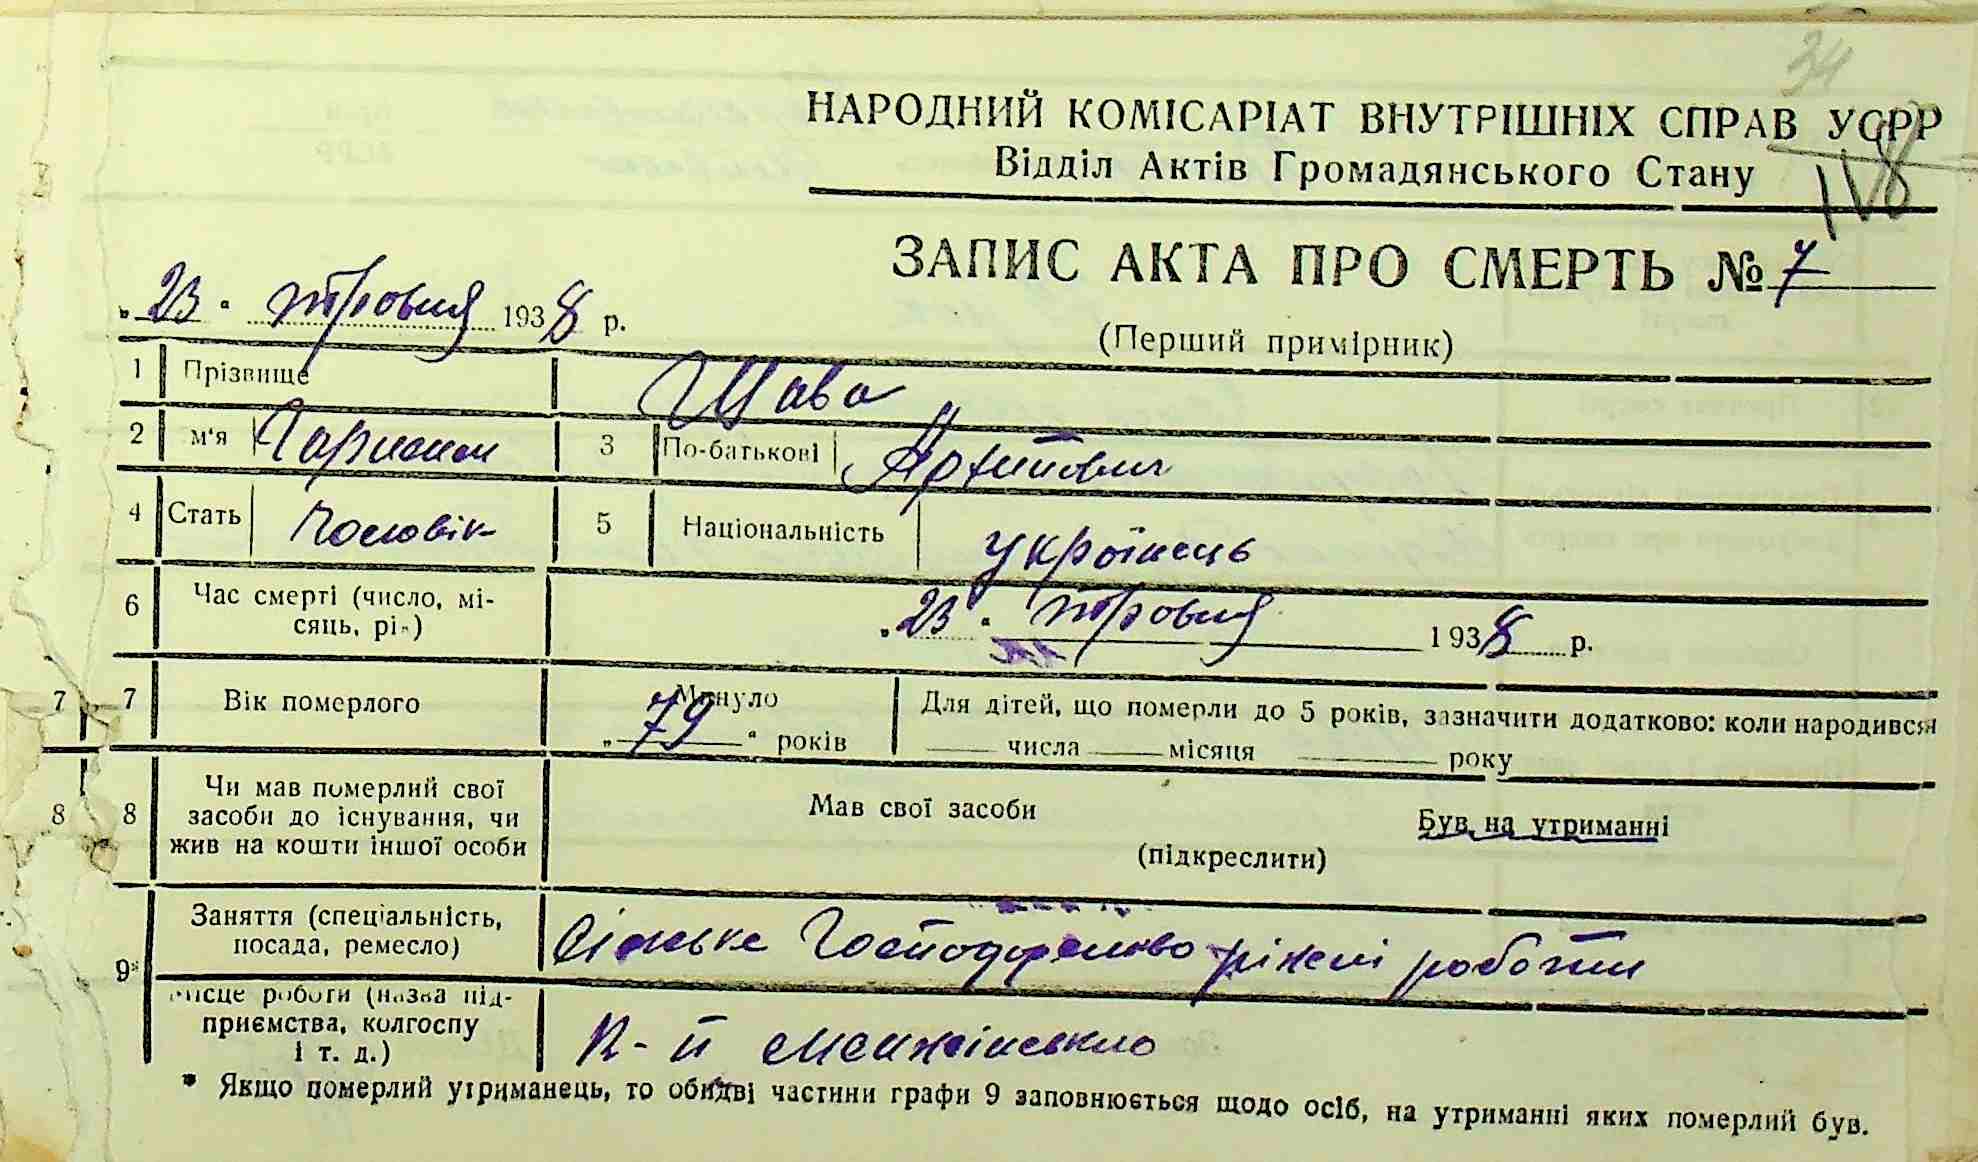 34
НАРОДНИЙ КОМІСАРІАТ ВНУТРІШНІХ СПРАВ УСРР
Відділ Актів Громадянського Стану
ЗАПИС АКТА ПРО СМЕРТЬ № 7
„23" травня 1938 р.
(Перший примірник)
1 Прізвище Шаво
2 м'я 3 По-батькові Архипович
4 Стать Чоловік 5 Національність українець
6 Час смерті (число, мі-
сяць, рік) „23" травня 1938 р.
7 7 Вік померлого Минуло „79" років Для дітей, що померли до 5 років, зазначити додатково: коли народився
числа місяця року
8 8 Чи мав померлий свої
засоби до існування, чи
жив на кошти іншої особи
Мав свої засоби Був на утриманні
(підкреслити)
9* Заняття (спеціальність,
посада, ремесло) Сільське Господарство ріжні роботи
Місце роботи (назва під-
приємства, колгоспу
і т. д.) К-п Менжінського
* Якщо померлий утриманець, то обидві частини графи 9 заповнюється щодо осіб, на утриманні яких померлий був.